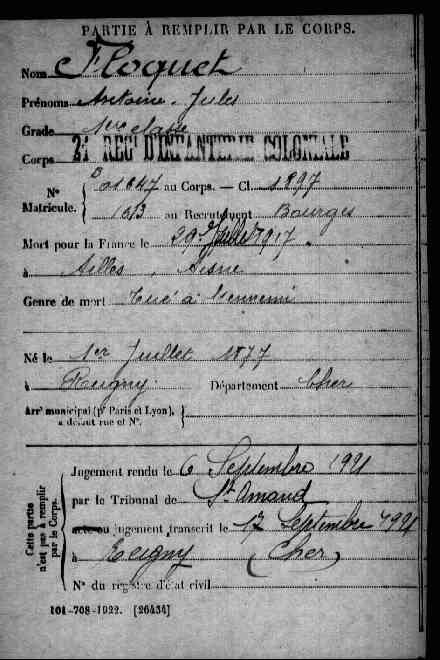 PARTIE À REMPLIR PAR LE CORPS.
Nom Floquet
Prénoms Antoine Jules
Grade 1ère classe
Corps 21 REG D'INFANTERIE COLONIALE
Nº Matricule. { 01647 au Corps. — Cl. 1897
1013 au Recrutement Bourges
Mort pour la France le 29 Juillet 1917
à Ailles, Aisne
Genre de mort Tué à l'ennemi
Né le 1er Juillet 1877
à Reigny Département Cher
Arrt municipal (pr Paris et Lyon),
à défaut rue et Nº.
Cette partie n'est pas à remplir par le Corps.
Jugement rendu le 6 Septembre 1921
par le Tribunal de St Amand
acte ou jugement transcrit le 17 Septembre 1921
à Reigny (Cher)
Nº du registre d'état civil
101-708-1922. [26434]